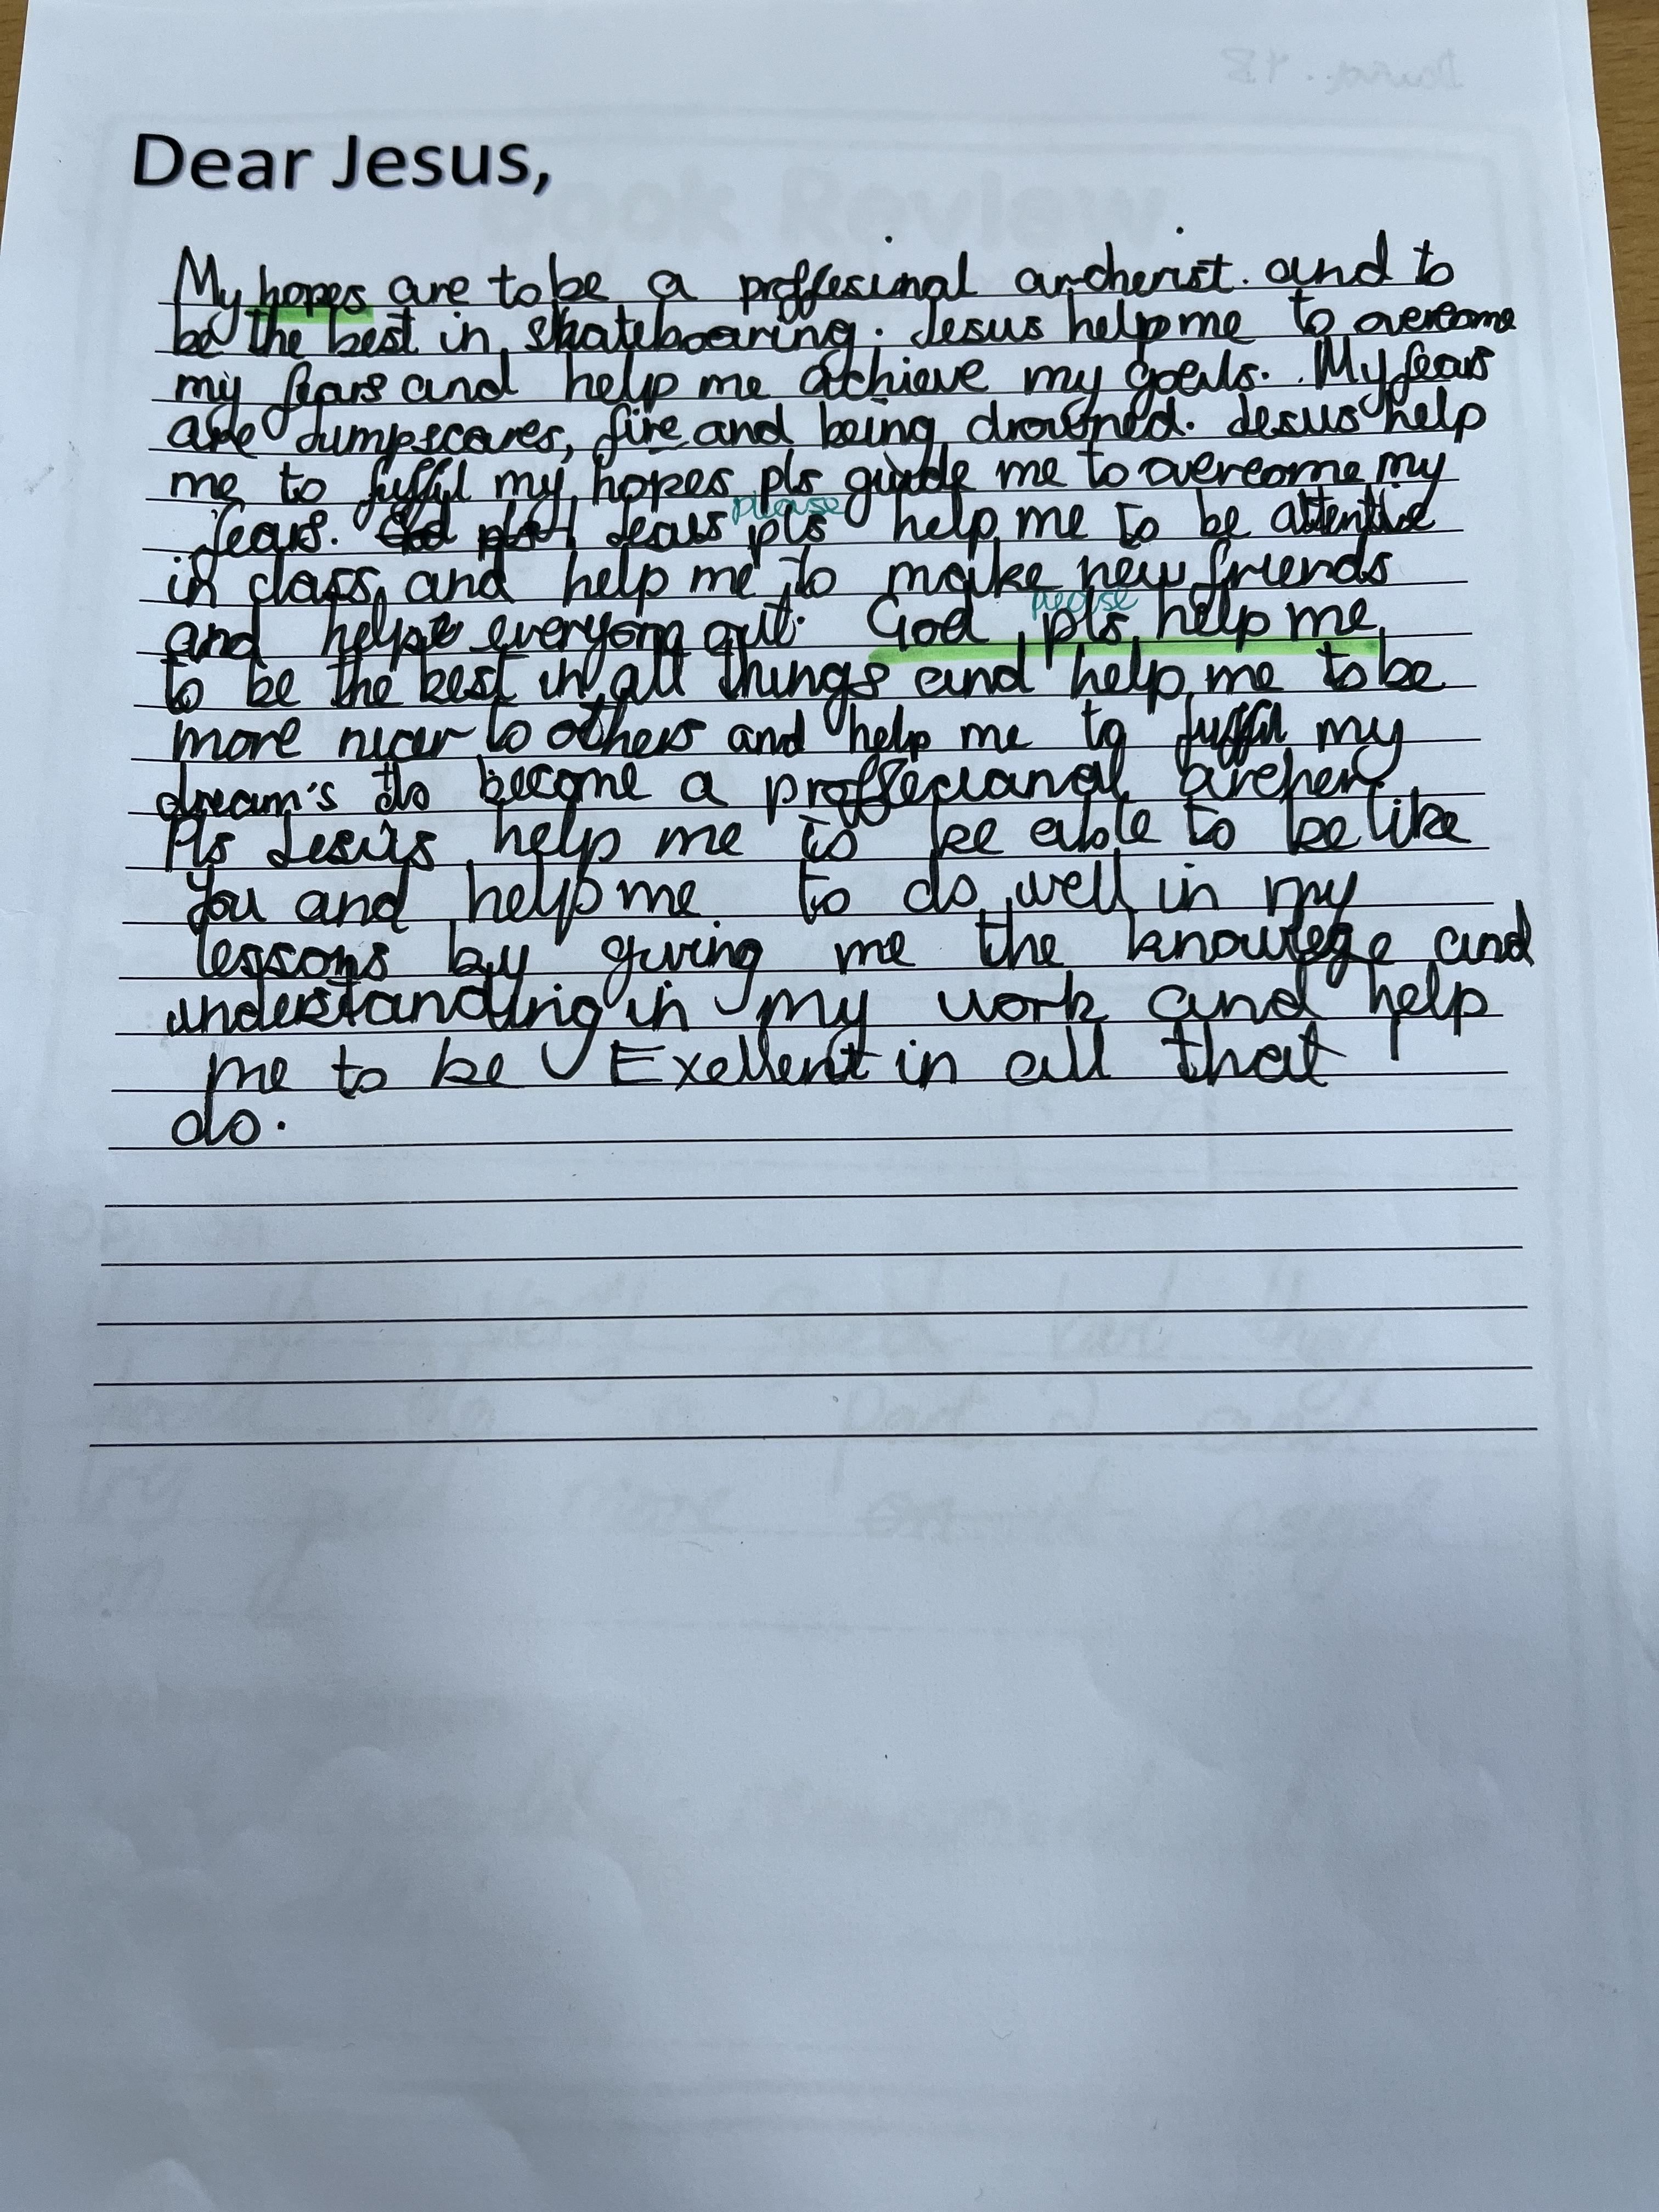 Dear Jesus,
My hopes are to be a proffesinal archerist. and to
be the best in skateboaring. Jesus help me to overcome
my fears and help me achieve my goals. My fears
are Jumpscares, fire and being drowned. Jesus help
me to fulfil my hopes pls guide me to overcome my
please
fears. Jesus pls help me to be attentive
in class and help me to make new friends
please
and help everyone out. God pls help me
to be the best in all things and help me to be
more nicer to others and help me to fulfil my
dream's to become a proffecianal archer.
Pls Jesus help me to be able to be like
you and help me to do well in my
lessons by giving me the knowlege and
understanding in my work and help
me to be Exellent in all that I
do.